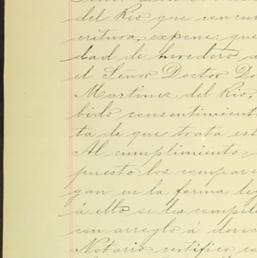 del Rio que con cu
critura, expone: que
dad de heredero a
el Señor Doctor D
Martinez del Rio,
bido consentimient
ta de que trata est
Al cumplimiento
puesto los compar
gan en la forma le
á ello se les compel
con arreglo á derec
Notario certifico co